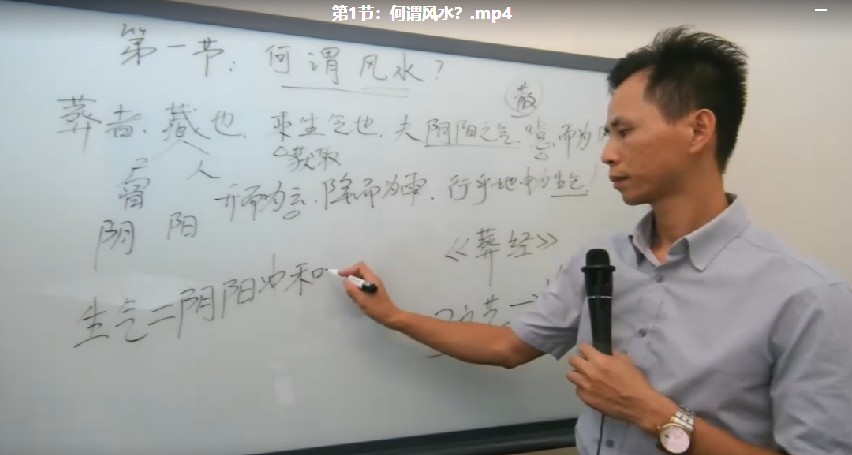 第1节：何谓风水？.mp4
第一节：何谓风水？
葬者，藏也，乘生气也，夫阴阳之气，噫而为
散
获取
骨 人
升而为云，降而为雨，行乎地中为生气！
阴 阳
《葬经》
生气二阴阳冲和